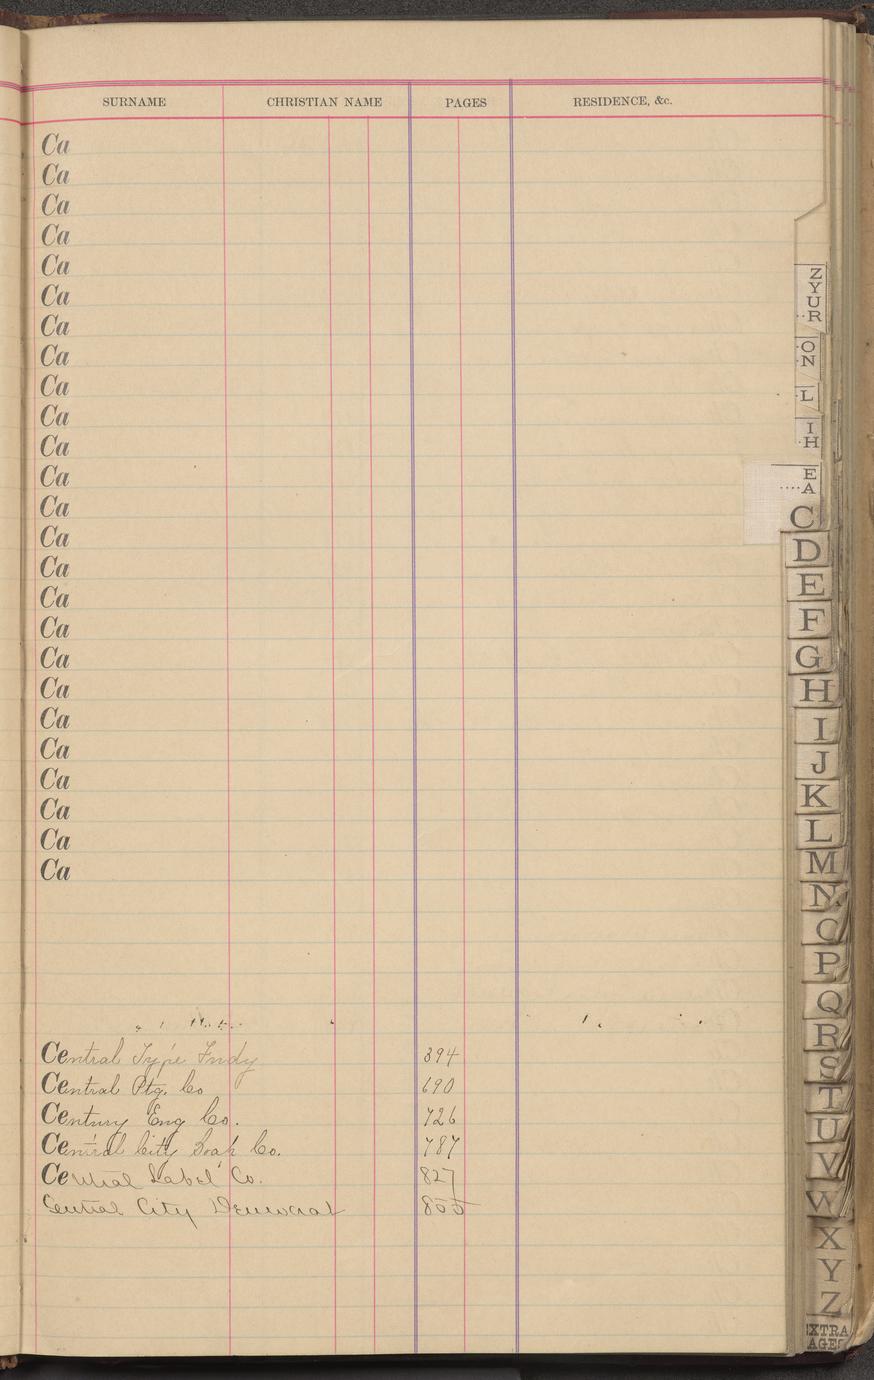 SURNAME CHRISTIAN NAME PAGES RESIDENCE, &c.
Ca
Ca
Ca
Ca
Ca
Ca
Ca
Ca
Ca
Ca
Ca
Ca
Ca
Ca
Ca
Ca
Ca
Ca
Ca
Ca
Ca
Ca
Ca
Ca
Ca
Central Type Fndy 394
Central Ptg. Co 690
Century Eng Co. 726
Central City Soap Co. 787
Central Label Co. 827
Central City Democrat 855
Z
Y
U
R
O
N
L
I
H
E
A
C
D
E
F
G
H
I
J
K
L
M
N
O
P
Q
R
S
T
U
V
W
X
Y
Z
EXTRA
PAGES